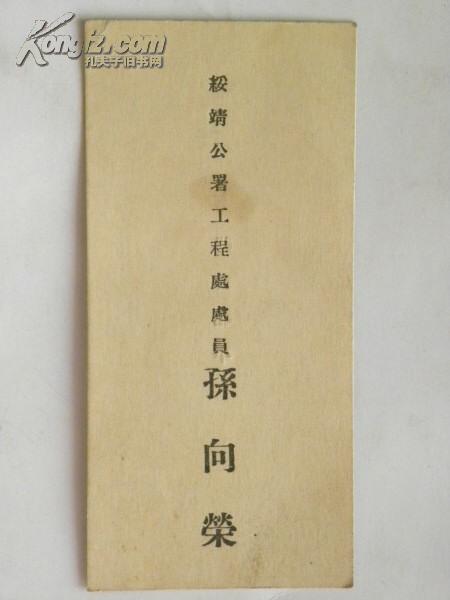 Kongfz.com
孔夫子旧书网
綏靖公署工程處處員
孫向榮